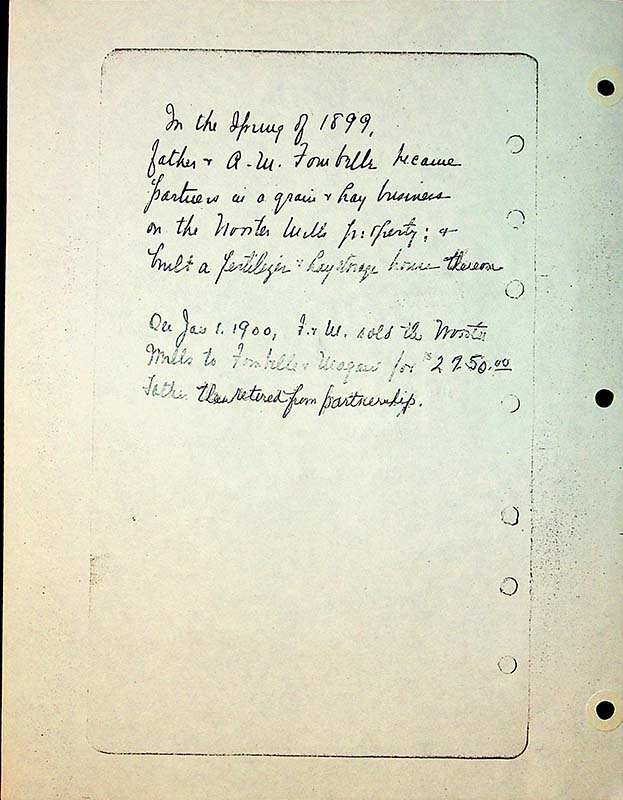 In the Spring of 1899,
father + A. M. Fombelle became
partners in a grain + hay business
on the Wooster Mills property; +
built a fertilizer + hay storage house thereon
On Jan 1. 1900, F. + M. sold the Wooster
Mills to Fombelle + Magaw for $2950.00
Father then retired from partnership.